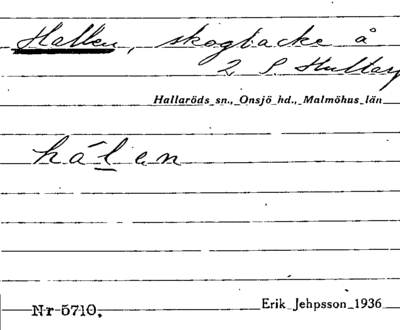 Hallen, skogbacke å
2 S. Hultarp
Hallaröds sn., Onsjö hd., Malmöhus län
hálen
Nr 5710. Erik Jehpsson 1936